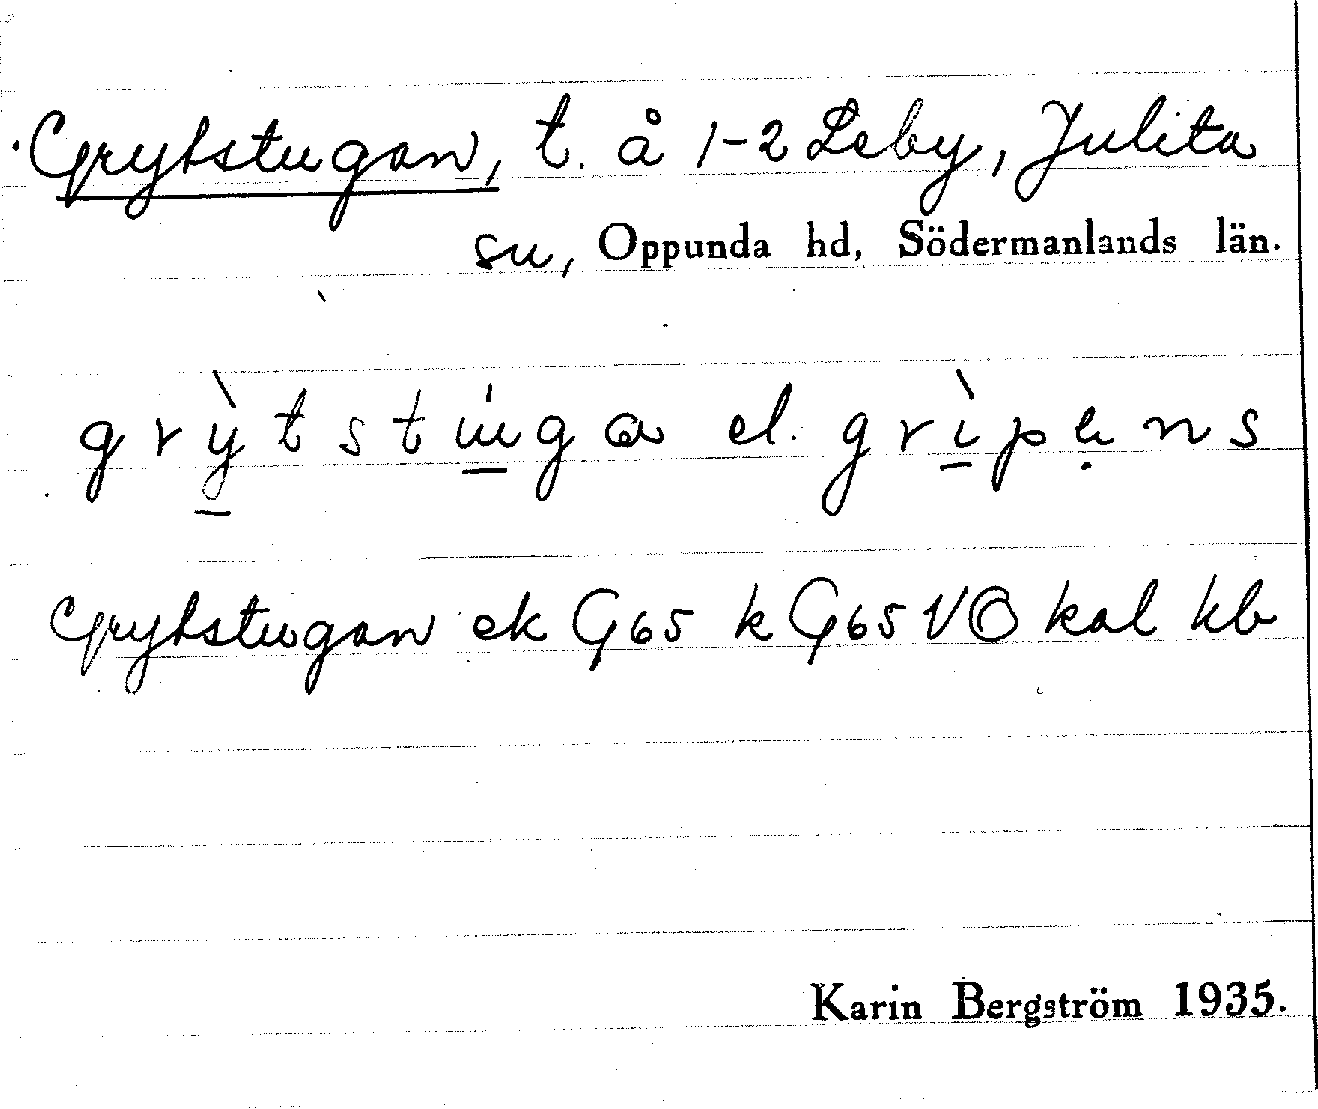 Grytstugan, t. å 1-2 Leby, Julita
su, Oppunda hd, Södermanlands län.
grỳtstúga el. grìpẹns
Grytstugan ek G65 k G65 V kal kb
Karin Bergström 1935.